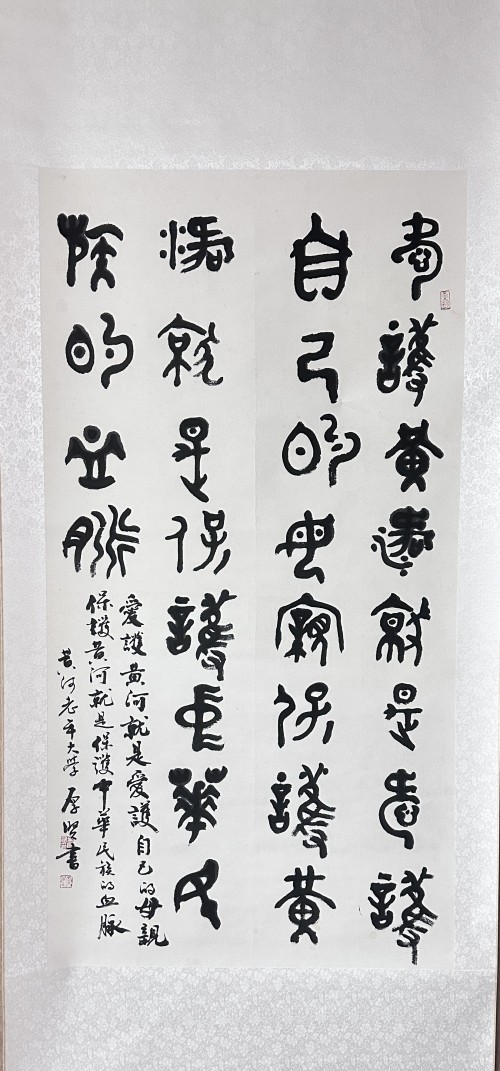 愛護黃河就是愛護
自己的母親保護黃
河就是保護中華民
族的血脈
愛護黄河就是愛護自己的母親
保護黄河就是保護中華民族的血脉
黄河老年大学 厚賢書